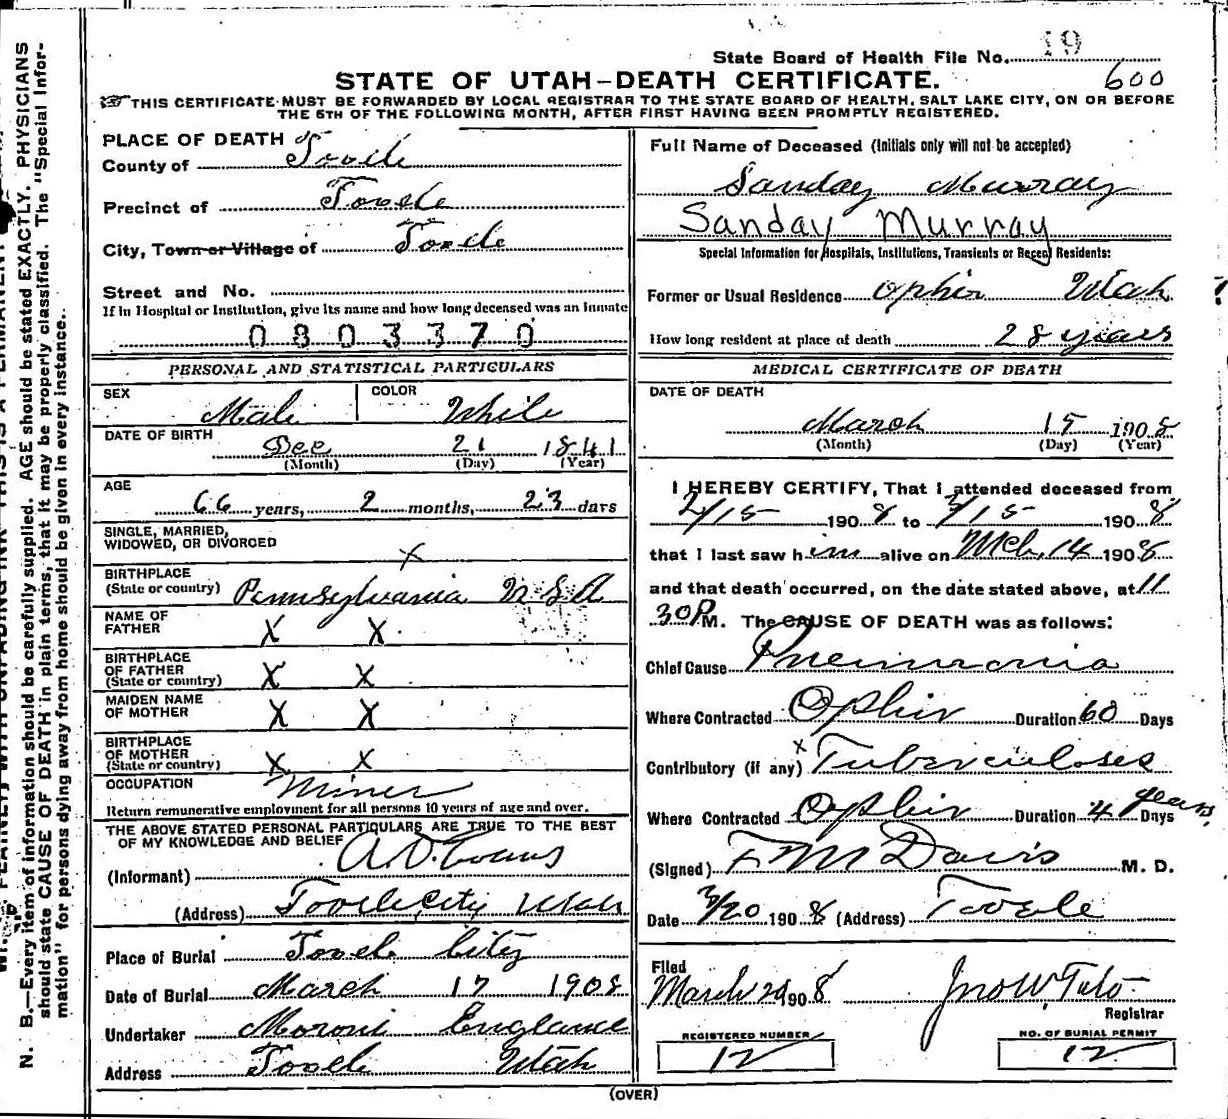 State Board of Health File No. 19
STATE OF UTAH-DEATH CERTIFICATE.
600
THIS CERTIFICATE MUST BE FORWARDED BY LOCAL REGISTRAR TO THE STATE BOARD OF HEALTH, SALT LAKE CITY, ON OR BEFORE
THE 5TH OF THE FOLLOWING MONTH, AFTER FIRST HAVING BEEN PROMPTLY REGISTERED.
PLACE OF DEATH
County of Tooele
Precinct of Tooele
City, Town or Village of Tooele
Street and No.
If in Hospital or Institution, give its name and how long deceased was an inmate
0803370
PERSONAL AND STATISTICAL PARTICULARS
SEX Male COLOR White
DATE OF BIRTH Dec 21 1841
(Month) (Day) (Year)
AGE
66 years, 2 months, 23 days
SINGLE, MARRIED,
WIDOWED, OR DIVORCED X
BIRTHPLACE
(State or country) Pennsylvania U.S.A
NAME OF
FATHER X X
BIRTHPLACE
OF FATHER
(State or country) X X
MAIDEN NAME
OF MOTHER X X
BIRTHPLACE
OF MOTHER
(State or country) X X
OCCUPATION Miner
Return remunerative employment for all persons 10 years of age and over.
THE ABOVE STATED PERSONAL PARTICULARS ARE TRUE TO THE BEST
OF MY KNOWLEDGE AND BELIEF
(Informant) A.D. Evans
(Address) Tooele City Utah
Place of Burial Tooele City
Date of Burial March 17 1908
Undertaker Moroni England
Address Tooele Utah
Full Name of Deceased (Initials only will not be accepted)
Sanday Murray
Sanday Murray
Special Information for Hospitals, Institutions, Transients or Recent Residents:
Former or Usual Residence Ophir Utah
How long resident at place of death 28 years
MEDICAL CERTIFICATE OF DEATH
DATE OF DEATH
March 15 1908
(Month) (Day) (Year)
I HEREBY CERTIFY, That I attended deceased from
2/15 1908 to 3/15 1908
that I last saw him alive on Mch. 14 1908
and that death occurred, on the date stated above, at 11
30 P M. The CAUSE OF DEATH was as follows:
Chief Cause Pneumonia
Where Contracted Ophir Duration 60 Days
Contributory (if any) X Tuberculoses
Where Contracted Ophir Duration 4 years Days
(Signed) F M Davis M. D.
Date 3/20 1908 (Address) Tooele
Filed
March 20 1908 Jno W. Tate
Registrar
REGISTERED NUMBER
12
NO. OF BURIAL PERMIT
12
(OVER)
N. B.—Every item of information should be carefully supplied. AGE should be stated EXACTLY. PHYSICIANS
should state CAUSE OF DEATH in plain terms, that it may be properly classified. The "Special Infor-
mation" for persons dying away from home should be given in every instance.